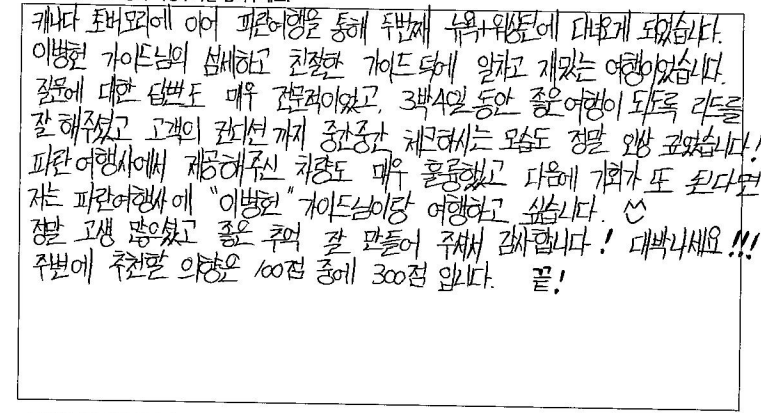 캐나다 토버모리에 이어 파란여행을 통해 두번째 뉴욕+워싱턴에 다녀오게 되었습니다.
이병헌 가이드님의 섬세하고 친절한 가이드 덕에 알차고 재밌는 여행이었습니다.
질문에 대한 답변도 매우 전문적이었고, 3박4일 동안 좋은여행이 되도록 리드를
잘 해주셨고 고객의 컨디션까지 중간중간 체크하시는 모습도 정말 인상 깊었습니다!
파란여행사에서 제공해주신 차량도 매우 훌륭했고 다음에 기회가 또 된다면
저는 파란여행사에 "이병헌" 가이드님이랑 여행하고 싶습니다.
정말 고생 많으셨고 좋은 추억 잘 만들어 주셔서 감사합니다! 대박나세요!!!
주변에 추천할 의향은 100점 중에 300점 입니다. 끝!